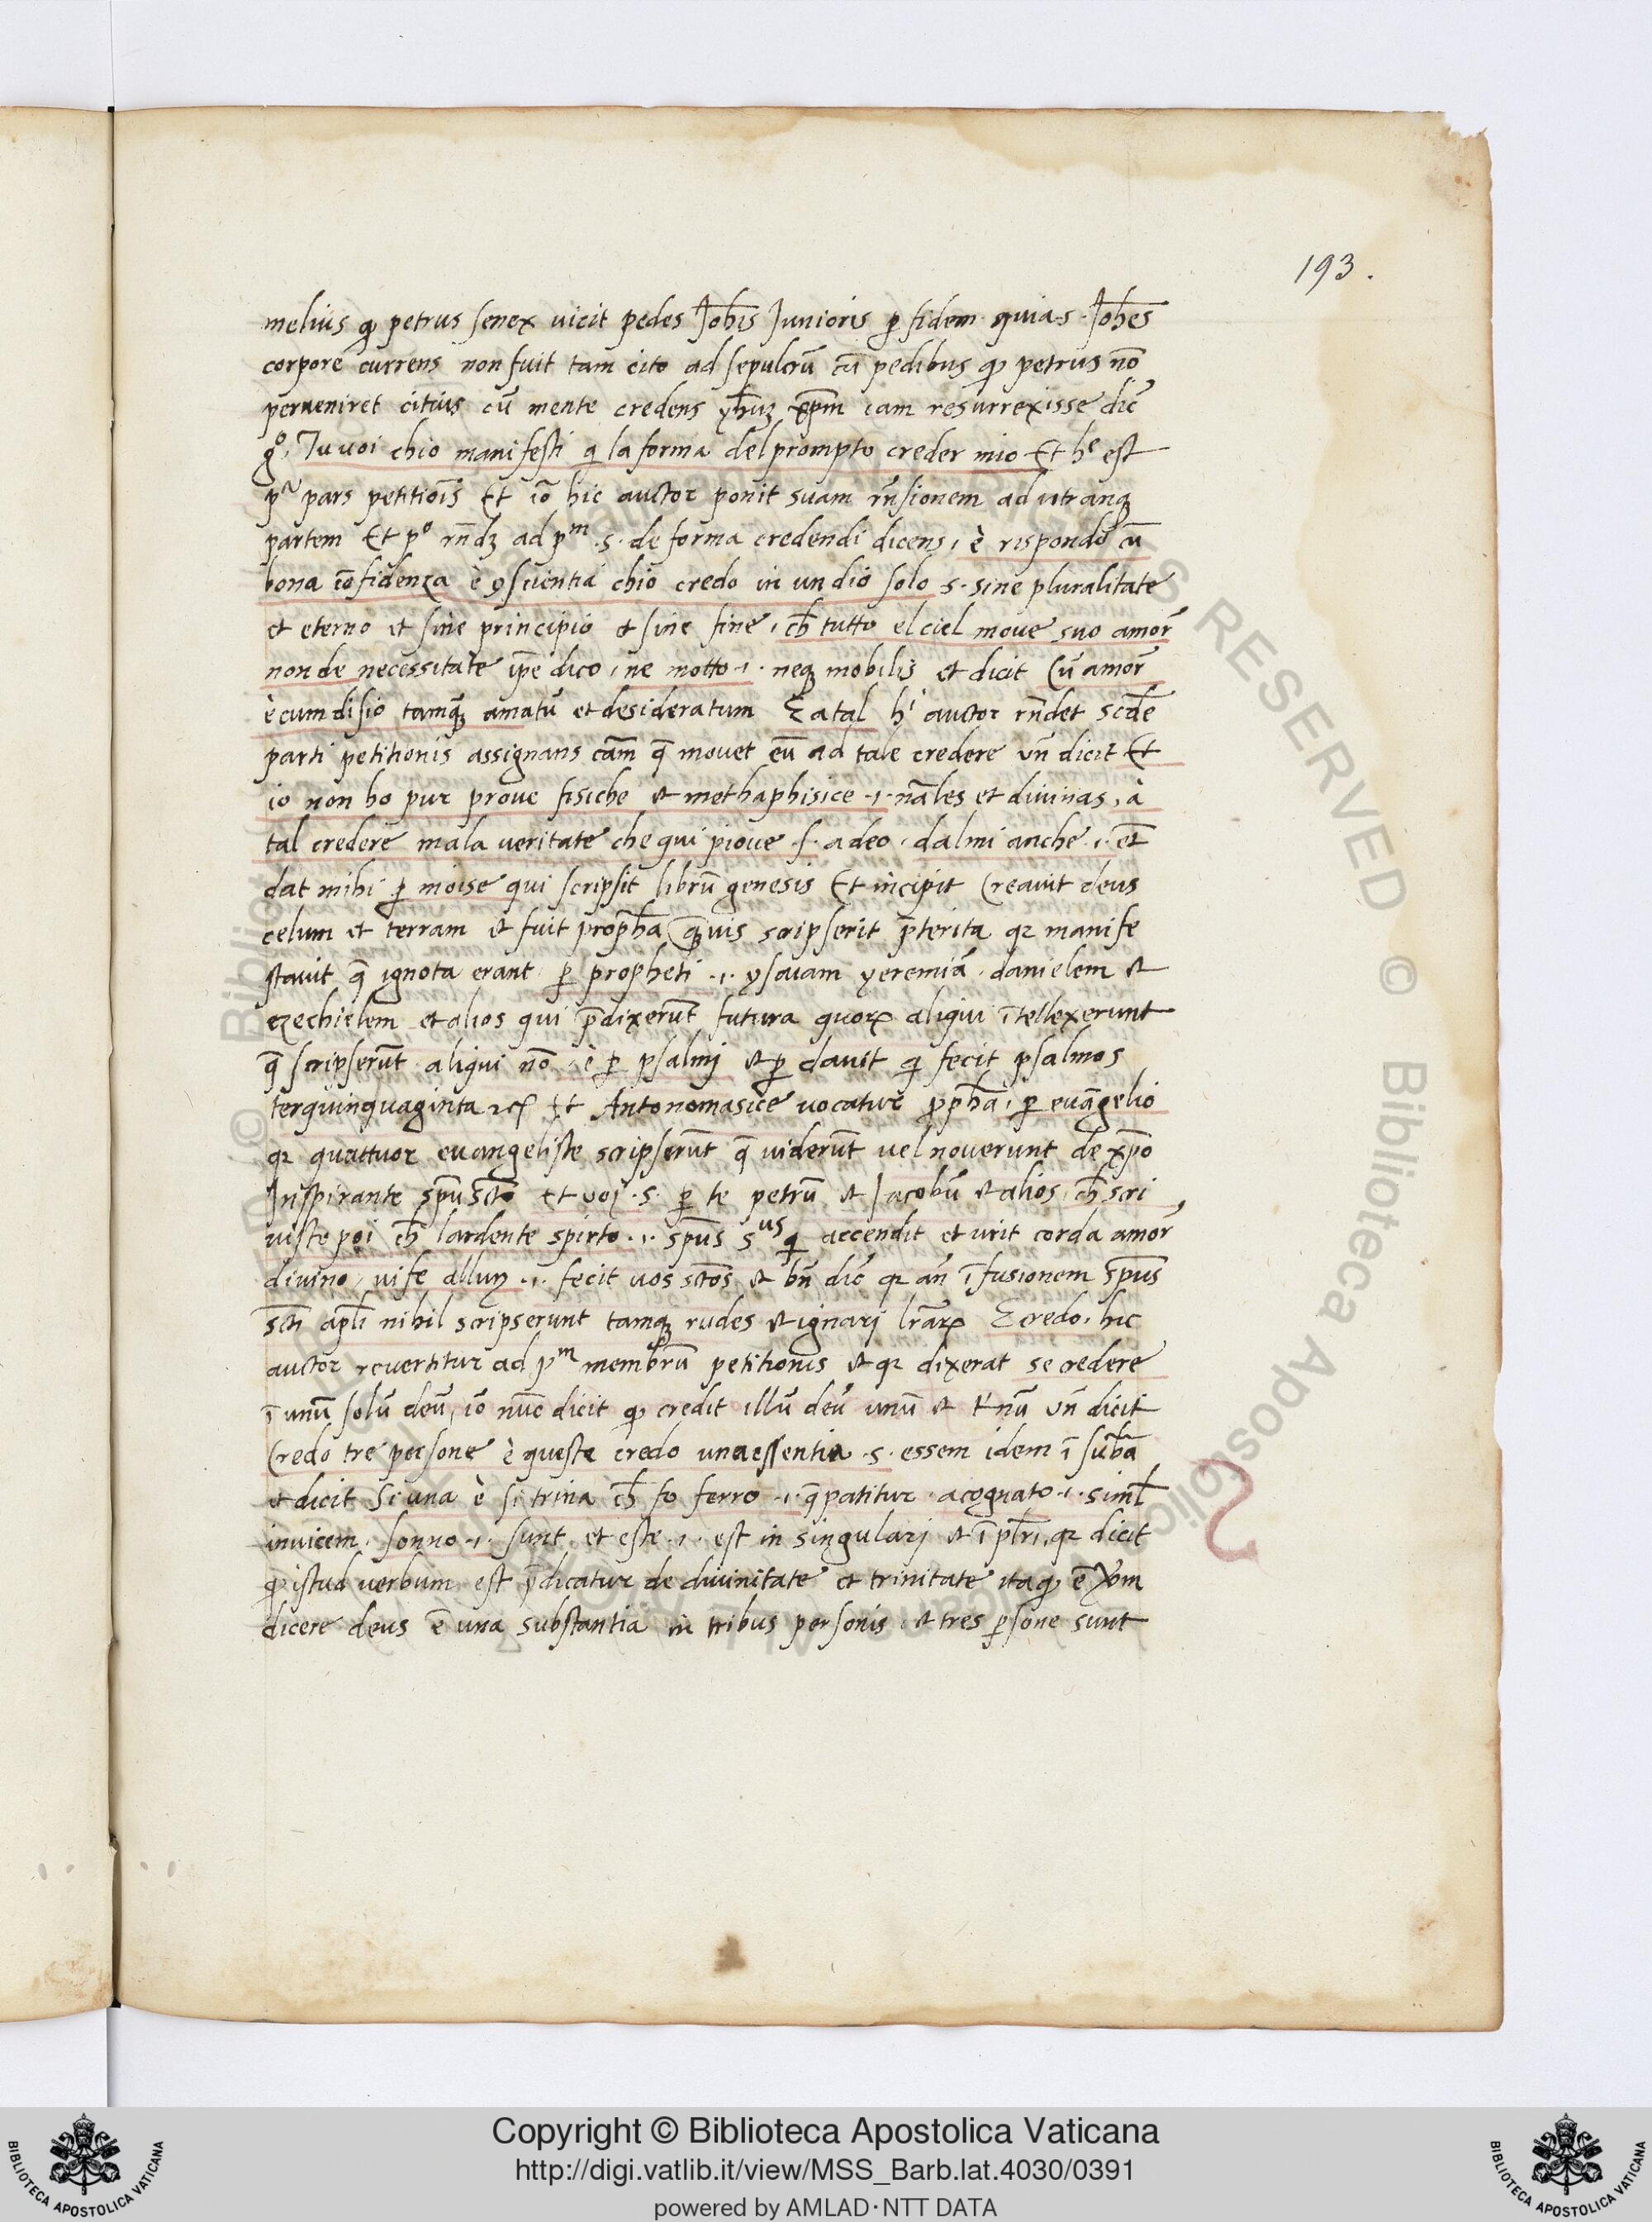 193.
melius qđ petrus senex vicit pedes Joħis Junioris ꝑ fidem quia ·s· Joħes
corpore currens non fuit tam cito ad sepulcrū cū pedibus qđ petrus nō
perveniret citius cū mente credens yħuʒ xp̄m iam resurrexisse dic̄
gº. Tu voi chio manifesti q̨ la forma del prompto creder mio Et hᵉ est
pᵃ pars petitiōis Et iō hic auctor ponit suam rn̄sionem ad utranqʒ
partem Et pº rn̄dʒ ad pᵐ ·s· de forma credendi dicens, è rispondo cū
bona cōfidenza è ꝯscientia chio credo in un dio solo ·s· sine pluralitate
et eterno et sine principio et sine fine, cħ tutto el ciel move suo amor̄
non de necessitate ip̄e dico, ne motto ·i· neqʒ mobilis et dicit Cū amor̄
è cum disio tamqʒ amatū et desideratum E a tal hⁱ auctor rn̄det sc̄de
parti petitionis assignans cām q̄ movet eū ad tale credere un̄ dicit Et
io non ho pur prove fisiche et methaphisice ·i· nāles et divinas, à
tal credere mala veritate che qui piove ·s· a deo · dalmi anche ·i· et̄
dat mihi ꝑ moise qui scripsit librū genesis Et incipit Creavit deus
celum et terram et fuit prop̄ħa q̄vis scripserit p̄terita qꝛ manife
stavit q̄ ignota erant ꝑ propheti ·i· ysaiam yeremiā · danielem et
ezechielem et alios qui p̄dixerūt futura quoꝝ aliqui ītellexerunt
q̄ scripserūt aliqui nō · è ꝑ psalmj et ꝑ davit q̨ fecit psalmos
terquinquaginta ꝛcꝭ Et Antonomasice vocatur ꝓp̄ħa, ꝑ evāgelio
qꝛ quattuor evangeliste scripserūt q̄ viderūt vel noverunt de xp̄o
Inspirante sp̄u sc̄to Et voj ·s· ꝑ te petrū et Jacobū et alios, cħ scri
viste poi cħ lardente spirto ·i· sp̄us sᵘˢ q̨ accendit et urit corda amor̄
divino, vi fe almj ·i· fecit vos sc̄tos et bn̄ dic̄ qꝛ an̄ īfusionem sp̄us
sc̄ti apl̄i nihil scripserunt tamqʒ rudes et ignarj lr̄aꝝ E credo, hic
auctor revertitur ad pᵐ membrū petitionis et qꝛ dixerat se credere
ī unū solū deū, iō nūc dicit qđ credit illū deū unū et trinū un̄ dicit
Credo tre persone è queste credo una essentia ·s· essem idem ī sub̄a
et dicit Si una è si trina cħ fo ferro ·i· q̄ patitur · acognato ·i· siml̄
invicem · sonno ·i· sunt, et este ·i· est in singularj et ī pl̄ri, qꝛ dicit
qđ istud verbum est p̄dicatur de divinitate et trinitate itaqđ ē
dicere deus ē una substantia in tribus personis · et tres ꝑsone sunt
Copyright © Biblioteca Apostolica Vaticana
http://digi.vatlib.it/view/MSS_Barb.lat.4030/0391
powered by AMLAD·NTT DATA
BIBLIOTECA APOSTOLICA VATICANA
BIBLIOTECA APOSTOLICA VATICANA